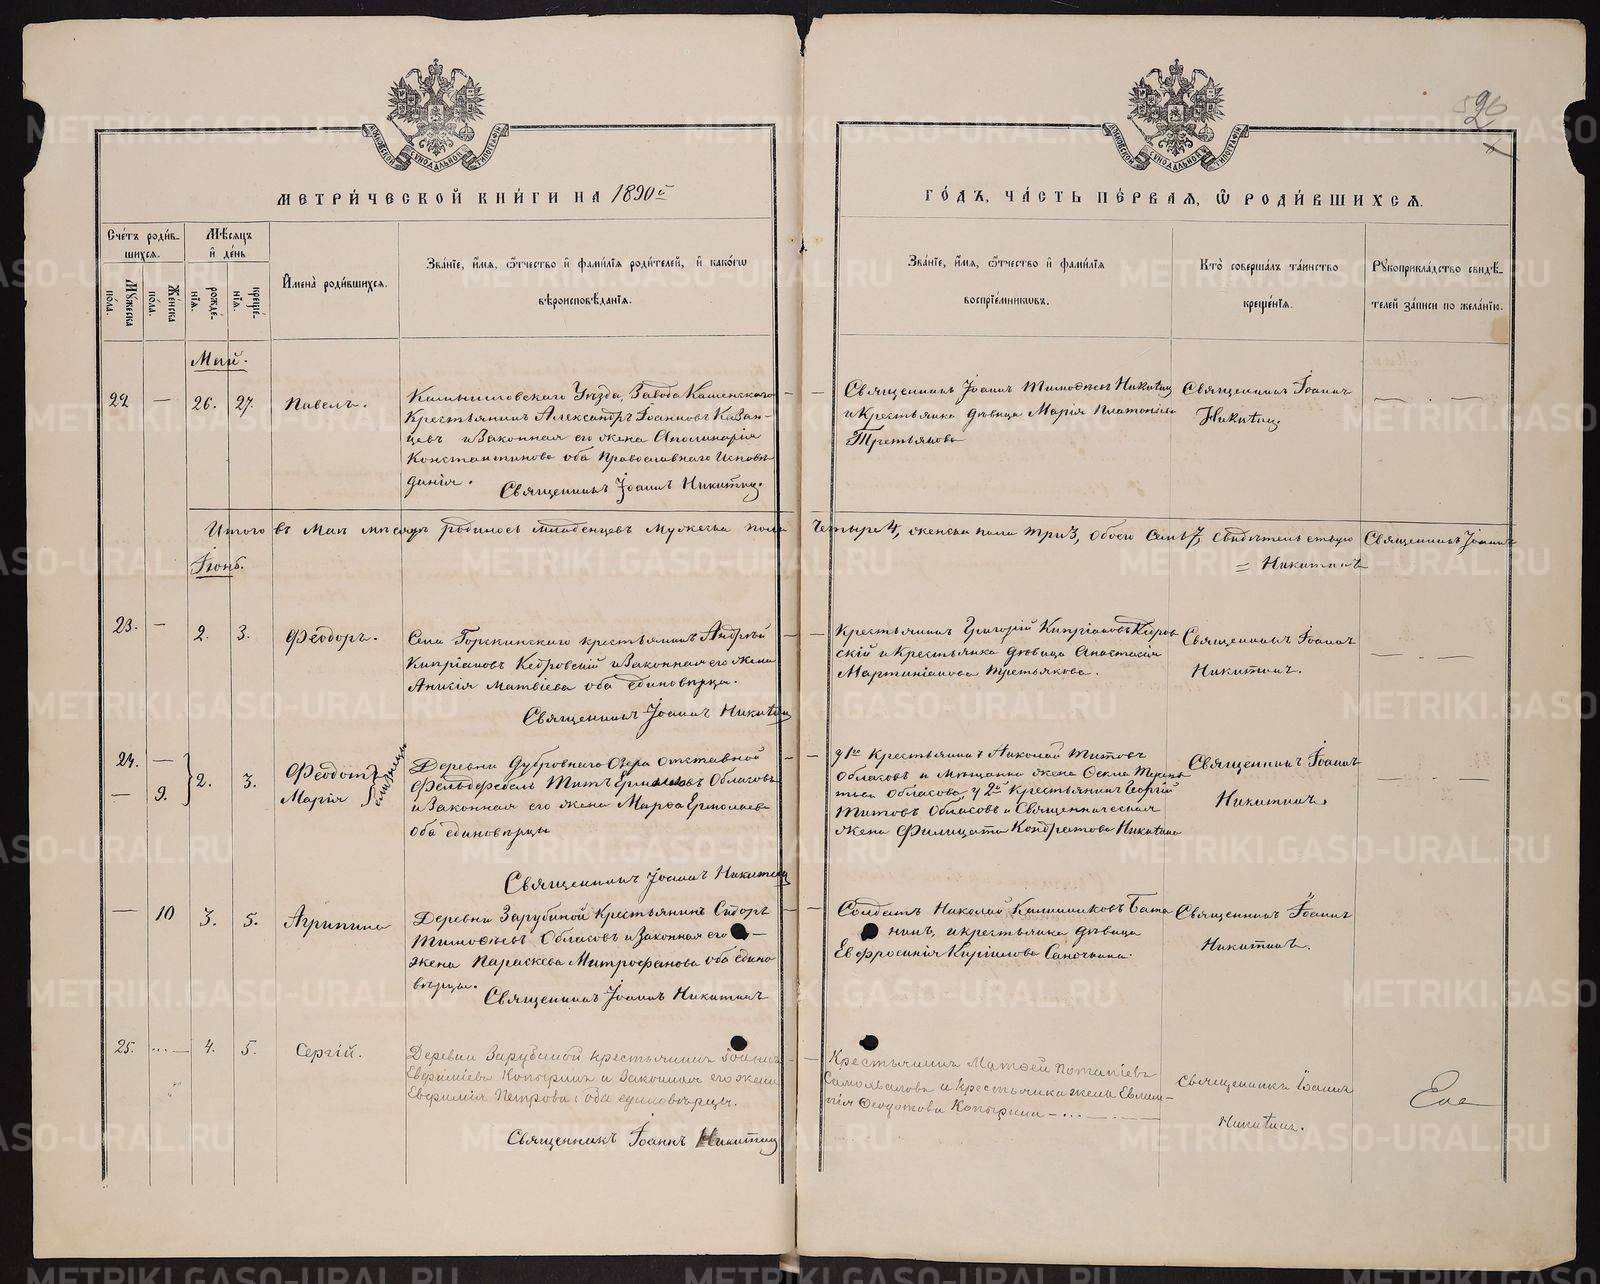 МЕТРИ́ЧЕСКОЙ КНИ́ГИ НА 1890й
ГО́ДЪ, ЧА́СТЬ ПЕ́РВАЯ, Ѡ РОДИ́ВШИХСѦ.
Сче́тъ роди́в-
шихся.
Мѣ́сяцъ
й де́нь
Му́жеска
по́ла.
Же́нска
по́ла.
рожде́-
нїѧ.
креще́-
нїѧ.
Имена̀ роди́вшихся.
Зва́нїе, и́мѧ, ѻ́тчество и҆ фами́лїѧ роди́телей, и҆ како́гѡ
вѣроисповѣ́данїѧ.
Зва́нїе, и́мѧ, ѻ́тчество и҆ фами́лїѧ
воспрїе́мниковъ.
Кто̀ соверша́лъ та́инство
креще́нїѧ.
Рукоприкла́дство свидѣ́-
телей за́писи по жела́нїю.
Май.
22 — 26. 27. Павелъ.
Камышловскаго Уѣзда, Завода Каменскаго
Крестьянинъ Александръ Іоанновъ Казан-
цевъ и Законная его жена Аполинарія
Константинова оба Православнаго Исповѣ
данія.
Священникъ Іоаннъ Никитин.
Священникъ Іоаннъ Тимоѳеев Никитин
и Крестьянка дѣвица Марія Платонова
Третьякова
Священникъ Іоаннъ
Никитин.
Итого въ Маѣ мѣсяцѣ родилось младенцевъ мужеска пола четыре 4, женска пола три 3, обоего семь 7, Свидѣтельствую Священникъ Іоаннъ
= Никитинъ
Іюнь.
23. — 2. 3. Ѳеодоръ.
Села Горскинскаго крестьянинъ Андрей
Кипріановъ Кедровскій и Законная его жена
Анисія Матвіева оба единовѣрцы.
Священникъ Іоаннъ Никитин
Крестьянинъ Григорій Кипріановъ Кедров
скій и Крестьянка дѣвица Анастасія
Мартиніанова Третьякова.
Священникъ Іоаннъ
Никитинъ.
24. —
— 9.
2. 3.
Ѳеодотъ
Марія
близнецы
Деревни Дубровнаго Озера отставной
Фельдфебель Титъ Обласовъ
и Законная его жена Марѳа Ермолаева
Оба единовѣрцы
Священникъ Іоаннъ Никитин
у 1го Крестьянинъ Николай Титовъ
Обласовъ и Мѣщанка жена Текла Терент
тьева Обласова, у 2й крестьянинъ Георгій
Титовъ Обласовъ и Священническая
жена Филицата Кондратова Никитина
Священникъ Іоаннъ
Никитинъ.
— 10 3. 5. Агрипина
Деревни Зарубиной Крестьянинъ Сидоръ
Тимоѳеевъ Обласовъ и Законная его —
жена Параскева Митрофанова оба едино
вѣрцы.
Священникъ Іоаннъ Никитинъ
Солдатъ Николай Калинниковъ Бата
нинъ, и крестьянка дѣвица
Евфросинія Кирилова
Священникъ Іоаннъ
Никитинъ.
25. 4. 5. Сергій.
Деревни Зарубиной крестьянинъ Іоаннъ
Евфиміевъ Копыринъ и Законная его жена
Евфимія Петрова: оба единовѣрцы.
Священникъ Іоаннъ Никитин
Крестьянинъ Матѳей Потапіевъ
Самоловово и крестьянка жена Евлам-
пія Ѳеодотова Копырина
Священникъ Іоаннъ
Никитинъ.
METRIKI.GASO-URAL.RU